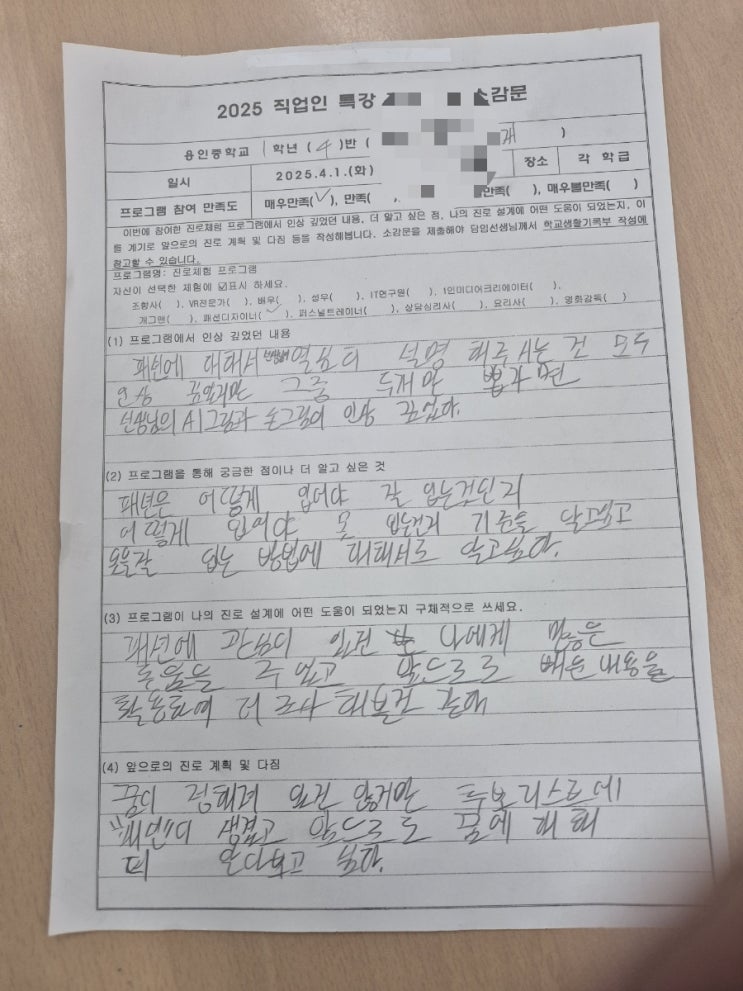 2025 직업인 특강 소감문
용인중학교 1학년 (4)반 ( )
일시 2025.4.1.(화) 장소 각 학급
프로그램 참여 만족도 매우만족(✓), 만족( ), 만족( ), 매우불만족( )
이번에 참여한 진로체험 프로그램에서 인상 깊었던 내용, 더 알고 싶은 점, 나의 진로 설계에 어떤 도움이 되었는지, 이
를 계기로 앞으로의 진로 계획 및 다짐 등을 작성해봅니다. 소감문을 제출해야 담임선생님께서 학교생활기록부 작성에
참고할 수 있습니다.
프로그램명: 진로체험 프로그램
자신이 선택한 체험에 ☑표시 하세요.
조향사( ), VR전문가( ), 배우( ), 성우( ), IT연구원( ), 1인미디어크리에이터( ),
개그맨( ), 패션디자이너(✓), 퍼스널트레이너( ), 상담심리사( ), 요리사( ), 영화감독( )
(1) 프로그램에서 인상 깊었던 내용
패션에 대해서 열심히 설명 해주시는 건 모두
인상 깊었지만 그중 두개만 뽑자면
선생님의 AI그림과 손그림이 인상 깊었다.
(2) 프로그램을 통해 궁금한 점이나 더 알고 싶은 것
패션은 어떻게 입어야 잘 입는것인지
어떻게 입어야 못 입는건지 기준을 알고싶고
옷을잘 입는 방법에 대해서도 알고싶다.
(3) 프로그램이 나의 진로 설계에 어떤 도움이 되었는지 구체적으로 쓰세요.
패션에 관심이 있던 나에게 많은
도움을 주었고 앞으로도 배운 내용을
활용하여 더 조사 해볼것 같애
(4) 앞으로의 진로 계획 및 다짐
꿈이 정해져 있진 않지만 후보리스트에
"패션"이 생겼고 앞으로도 꿈에 대해
더 알아보고 싶다.